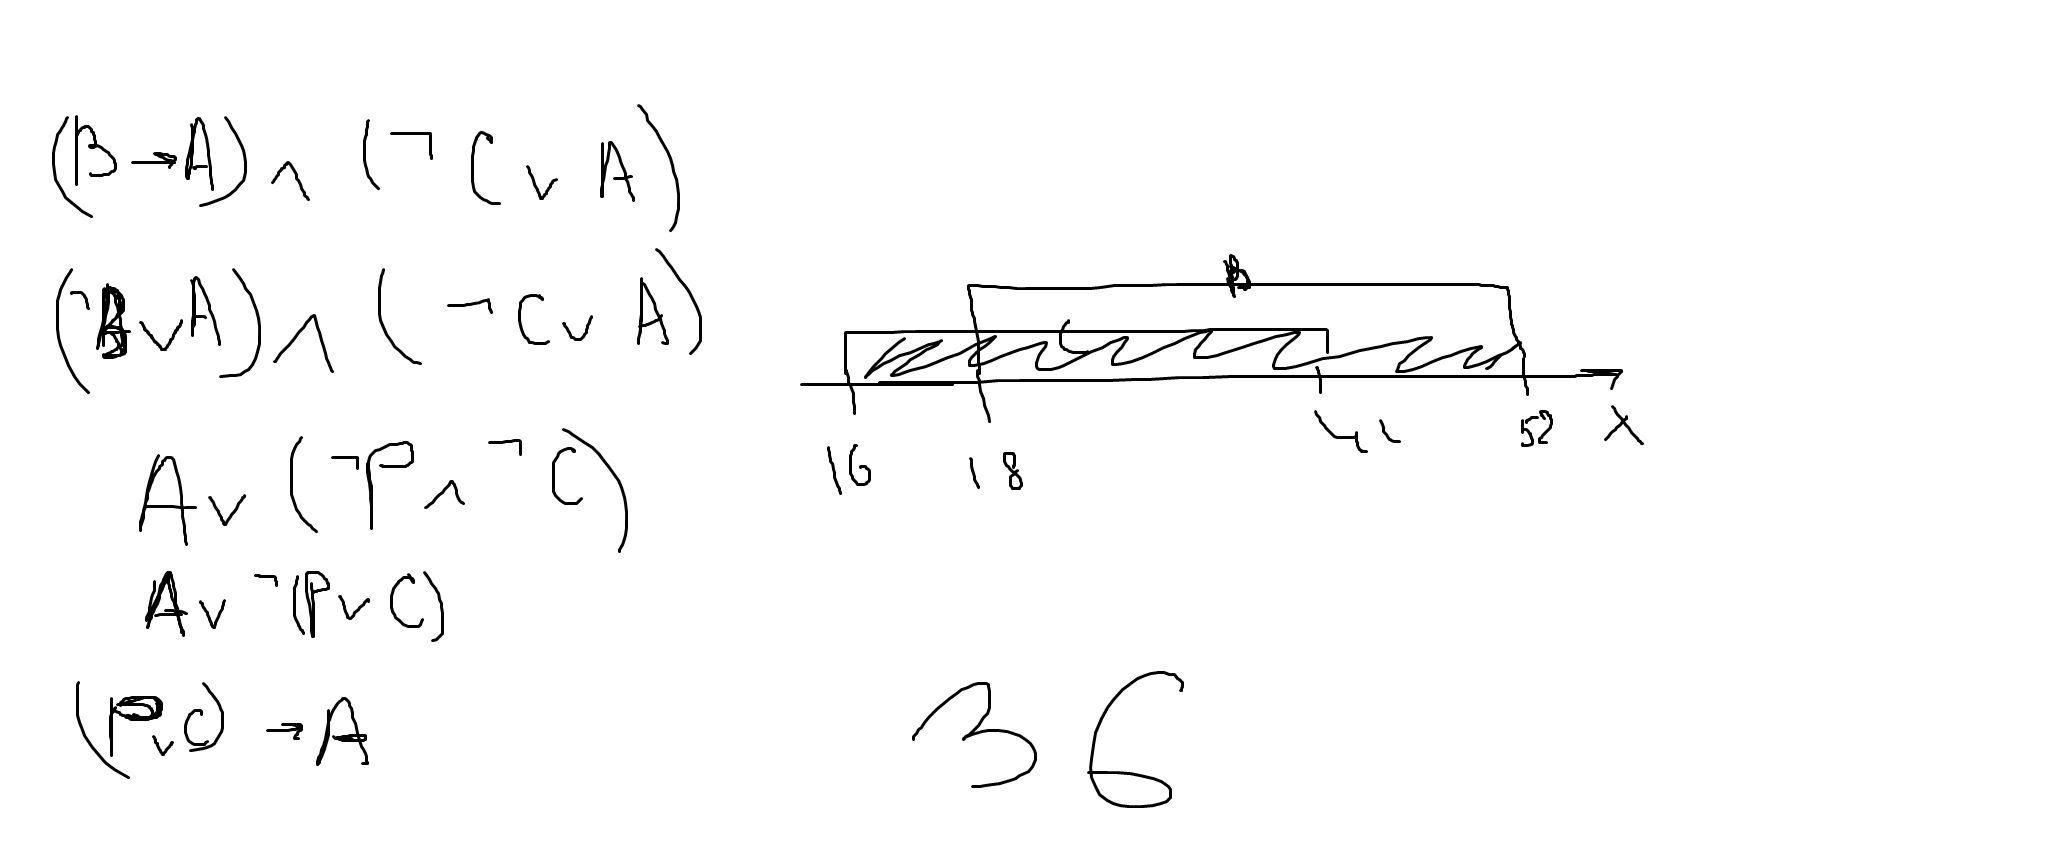 (B→A)∧(¬C∨A)
(¬B∨A)∧(¬C∨A)
A∨(¬P∧¬C)
A∨¬(P∨C)
(P∨C)→A
B
C
16 18 52 X
36